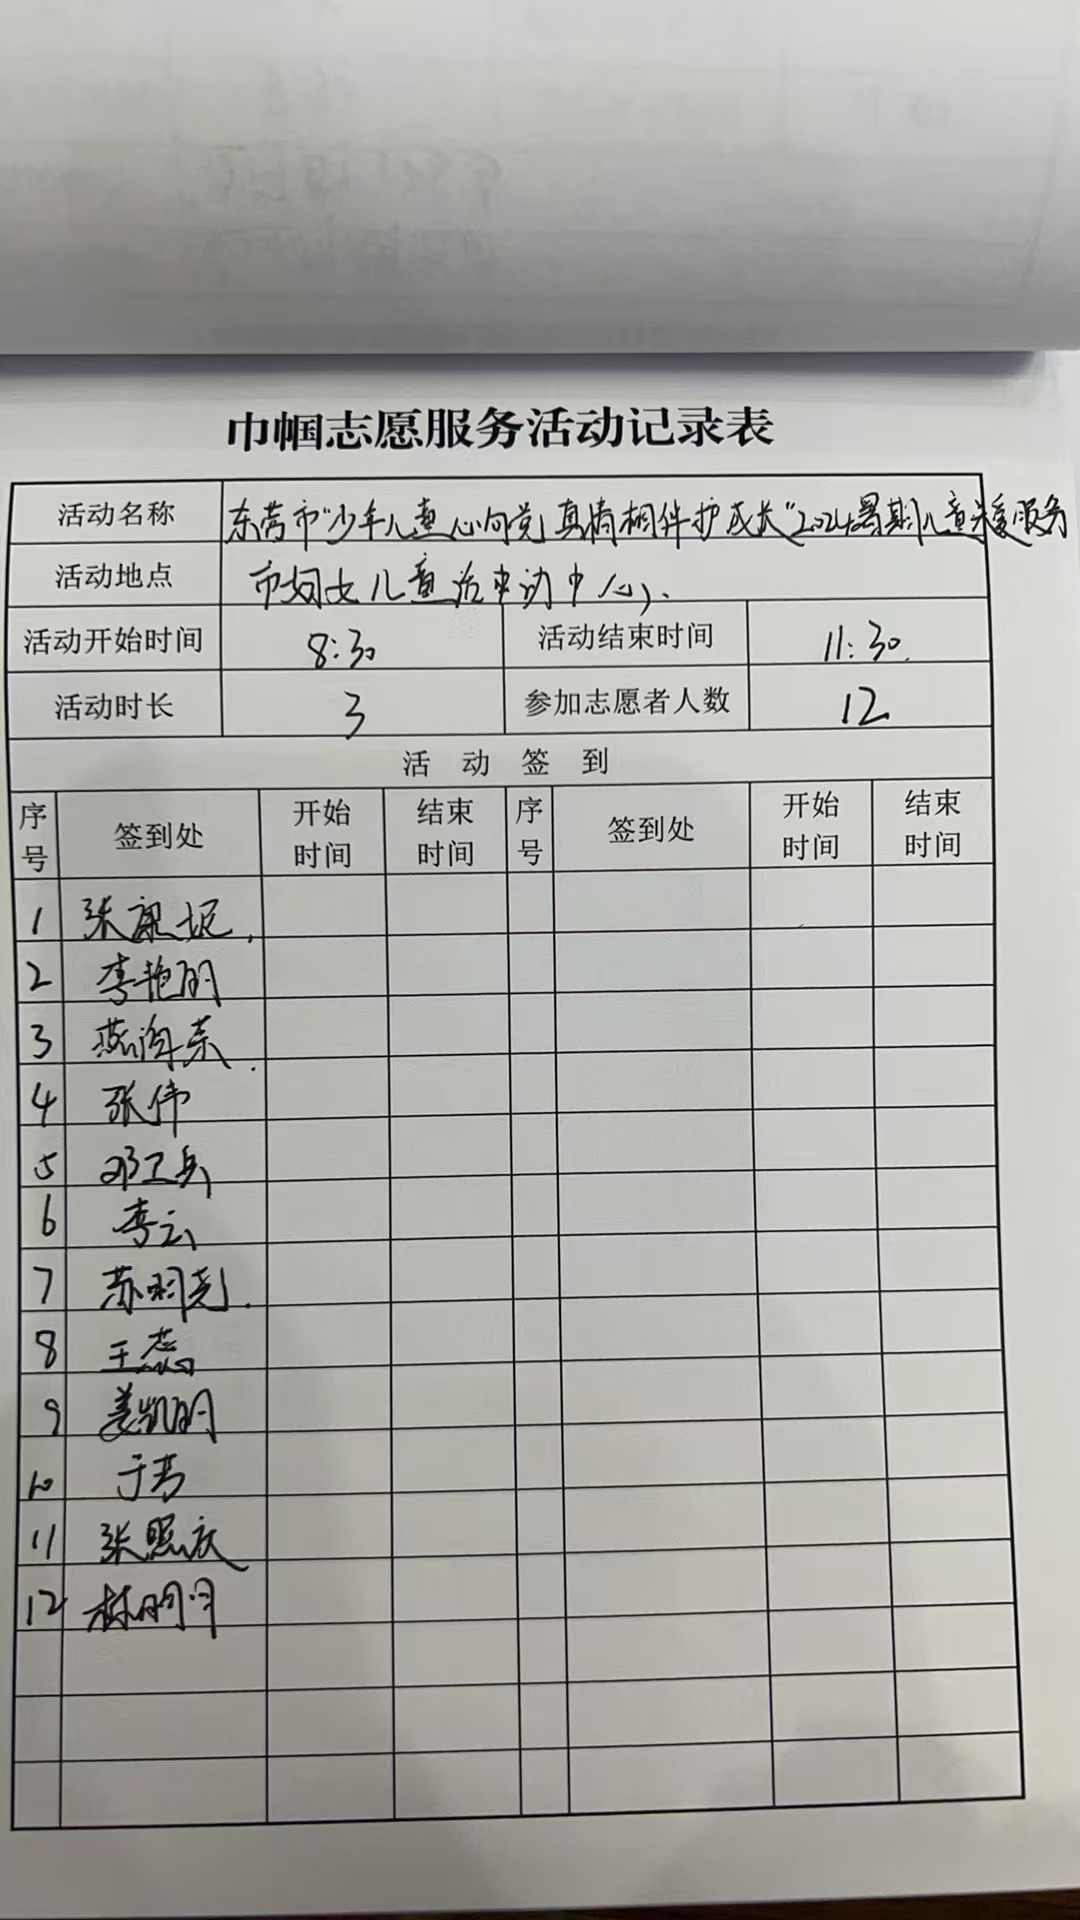 巾帼志愿服务活动记录表
活动名称 东营市"少年儿童心向党 真情相伴护成长"2024暑期儿童关爱服务
活动地点 市妇女儿童活动中心
活动开始时间 8:30 活动结束时间 11:30
活动时长 3 参加志愿者人数 12
活动签到
序号 签到处 开始时间 结束时间 序号 签到处 开始时间 结束时间
1 张
2 李艳丽
3 燕海荣
4 张伟
5 邓卫兵
6 李云
7 苏明亮
8 王蕊
9 姜凯明
10 于芳
11 张照庆
12 林明月